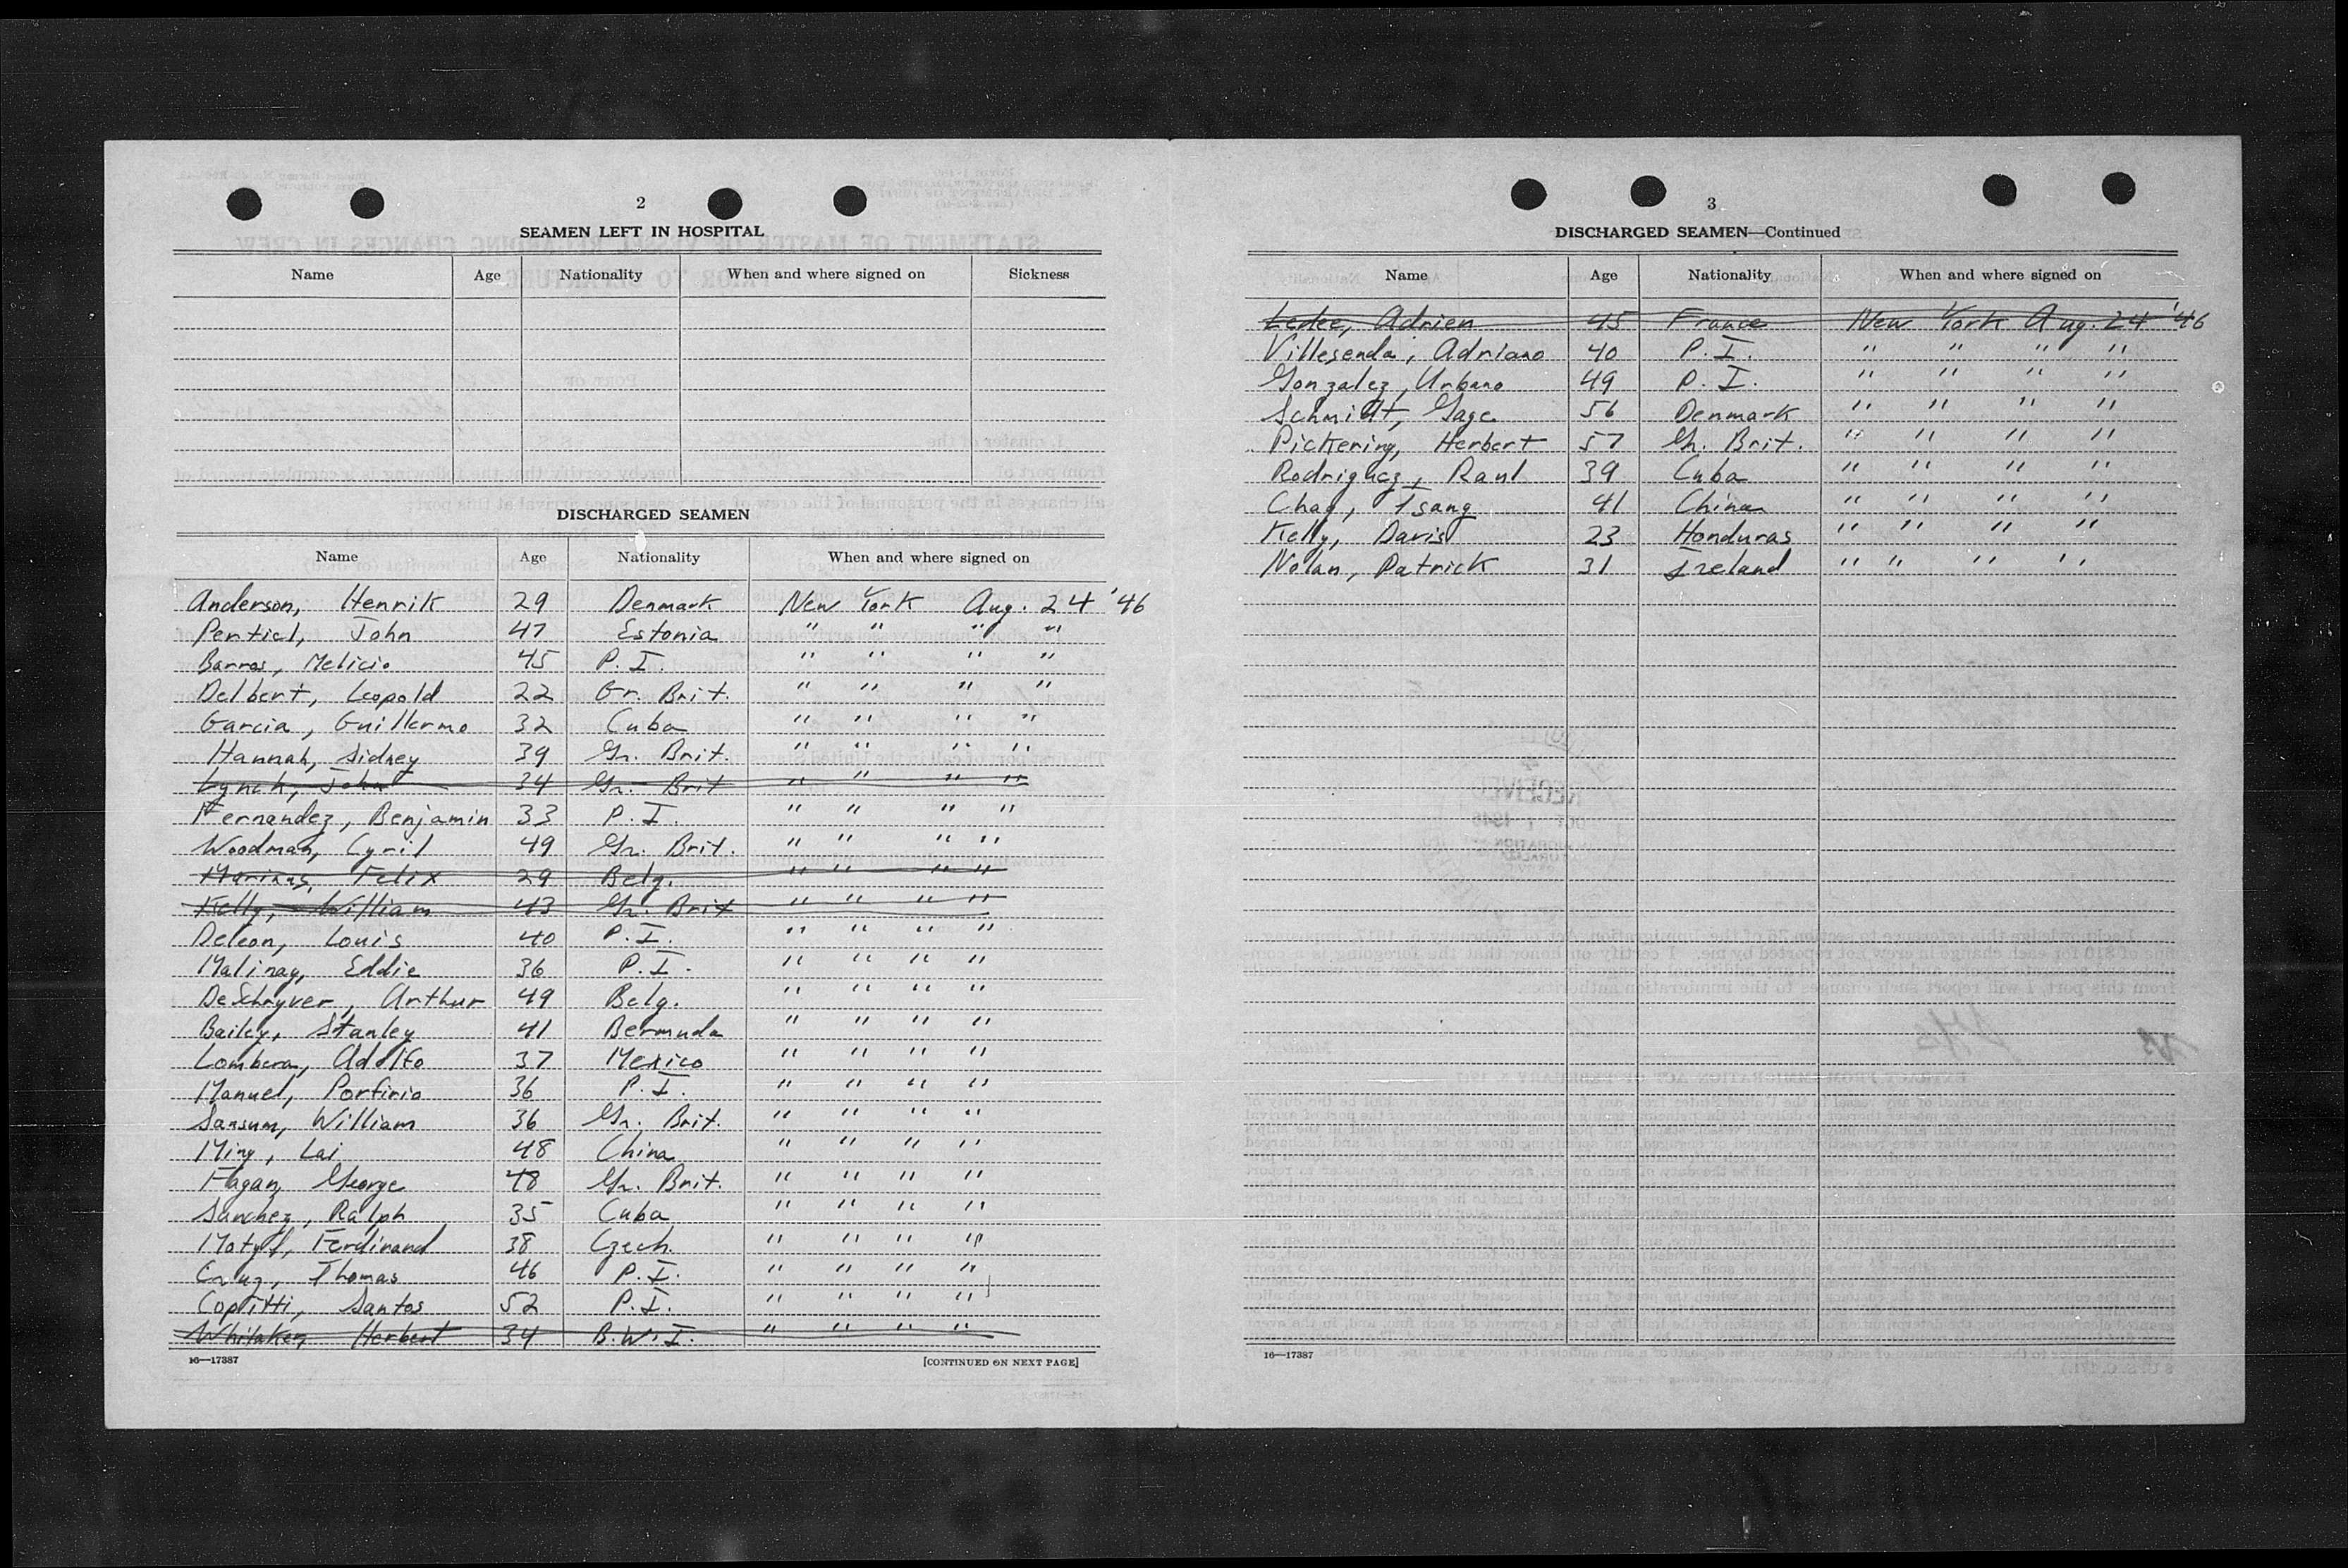 2
SEAMEN LEFT IN HOSPITAL
Name Age Nationality When and where signed on Sickness
DISCHARGED SEAMEN
Name Age Nationality When and where signed on
Anderson, Henrik 29 Denmark New York Aug. 24 '46
Pentiel, John 47 Estonia " " " "
Barros, Melicio 45 P. I. " " " "
Delbert, Leopold 22 Gr. Brit. " " " "
Garcia, Guillermo 32 Cuba " " " "
Hannah, Sidney 39 Gr. Brit. " " " "
Lynch, John 34 Gr. Brit " " " "
Fernandez, Benjamin 33 P. I. " " " "
Woodman, Cyril 49 Gr. Brit. " " " "
Marinus, Felix 29 Belg. " " " "
Kelly, William 43 Gr. Brit " " " "
Deleon, Louis 40 P. I. " " " "
Malinay, Eddie 36 P. I. " " " "
DeSchryver, Arthur 49 Belg. " " " "
Bailey, Stanley 41 Bermuda " " " "
Lombera, Adolfo 37 Mexico " " " "
Manuel, Porfirio 36 P. I. " " " "
Sansum, William 36 Gr. Brit. " " " "
Ming, Lai 48 China " " " "
Fagan, George 48 Gr. Brit. " " " "
Sanchez, Ralph 35 Cuba " " " "
Motyl, Ferdinand 38 Czech. " " " "
Cruz, Thomas 46 P. I. " " " "
Copitti, Santos 52 P. I. " " " "
Whitaker, Herbert 34 B. W. I. " " " "
16—17387 [CONTINUED ON NEXT PAGE]
3
DISCHARGED SEAMEN—Continued
Name Age Nationality When and where signed on
Ledee, Adrien 45 France New York Aug. 24 '46
Villesenda, Adriano 40 P. I. " " " "
Gonzalez, Urbano 49 P. I. " " " "
Schmidt, Gage 56 Denmark " " " "
Pickering, Herbert 57 Gr. Brit. " " " "
Rodriguez, Raul 39 Cuba " " " "
Chag, Tsang 41 China " " " "
Kelly, Davis 23 Honduras " " " "
Nolan, Patrick 31 Ireland " " " "
16—17387